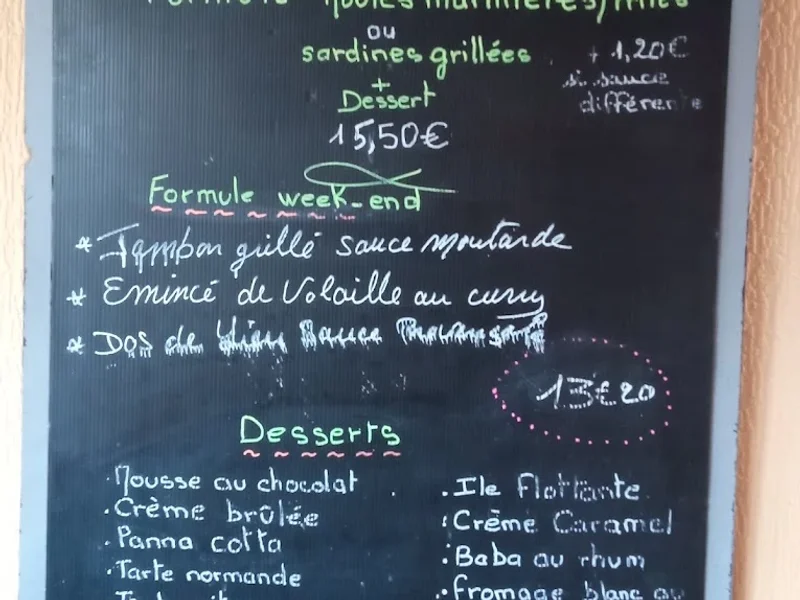 Formule Moules marinières/frites
ou
sardines grillées
+ 1,20€
si sauce
différente
+
Dessert
15,50€
Formule week-end
* Jambon grillé sauce moutarde
* Emincé de Volaille au curry
* Dos de Lieu Sauce
13€20
Desserts
. Mousse au chocolat
. Crème brûlée
. Panna cotta
. Tarte normande
. Ile Flottante
. Crème Caramel
. Baba au rhum
. Fromage blanc au